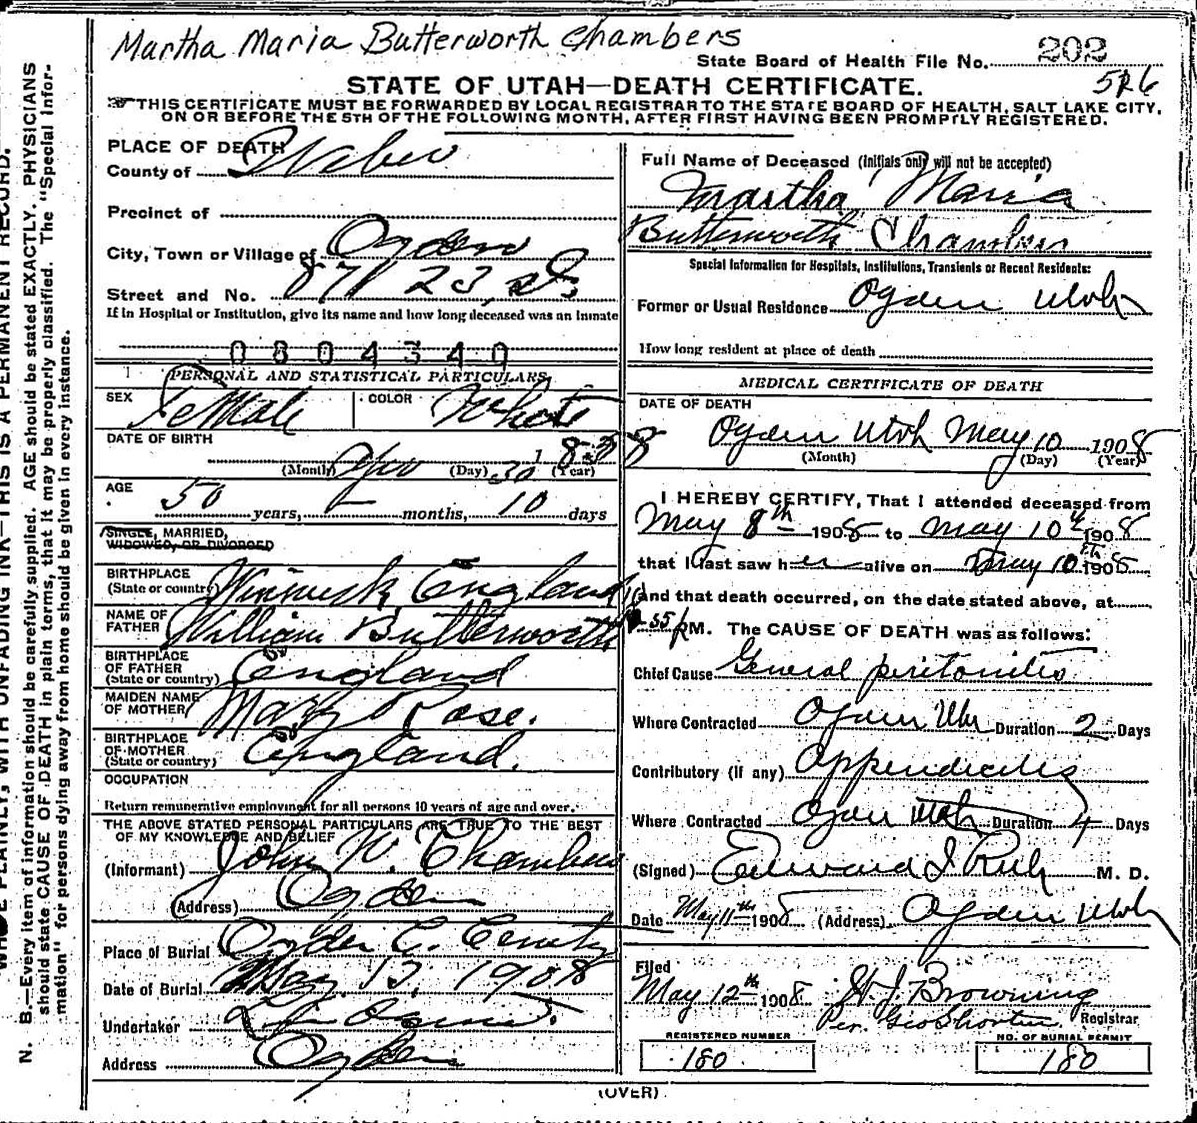 Martha Maria Butterworth Chambers
State Board of Health File No. 202
526
STATE OF UTAH—DEATH CERTIFICATE.
THIS CERTIFICATE MUST BE FORWARDED BY LOCAL REGISTRAR TO THE STATE BOARD OF HEALTH, SALT LAKE CITY,
ON OR BEFORE THE 5TH OF THE FOLLOWING MONTH, AFTER FIRST HAVING BEEN PROMPTLY REGISTERED.
PLACE OF DEATH
County of Weber
Precinct of
City, Town or Village of Ogden
Street and No. 871 23, st
If in Hospital or Institution, give its name and how long deceased was an Inmate
0804340
PERSONAL AND STATISTICAL PARTICULARS
SEX Female COLOR White
DATE OF BIRTH
(Month) (Day) 30 1858 (Year)
AGE
50 years, - months, 10 days
SINGLE, MARRIED,
WIDOWED, OR DIVORCED
BIRTHPLACE
(State or country) England
NAME OF
FATHER William Butterworth
BIRTHPLACE
OF FATHER
(State or country) England
MAIDEN NAME
OF MOTHER Mary Rose.
BIRTHPLACE
OF MOTHER
(State or country) England.
OCCUPATION
Return remunerative employment for all persons 10 years of age and over.
THE ABOVE STATED PERSONAL PARTICULARS ARE TRUE TO THE BEST
OF MY KNOWLEDGE AND BELIEF
(Informant) John W. Chambers
(Address) Ogden
Place of Burial Ogden C. Cemetery
Date of Burial May 13, 1908
Undertaker
Address Ogden
Full Name of Deceased (initials only will not be accepted)
Martha Maria
Butterworth Chambers
Special Information for Hospitals, Institutions, Transients or Recent Residents:
Former or Usual Residence Ogden Utah
How long resident at place of death
MEDICAL CERTIFICATE OF DEATH
DATE OF DEATH
Ogden Utah May 10 1908
(Month) (Day) (Year)
I HEREBY CERTIFY, That I attended deceased from
May 8th 1908 to May 10th 1908
that I last saw her alive on May 10th 1908
and that death occurred, on the date stated above, at
55 PM. The CAUSE OF DEATH was as follows:
Chief Cause General peritonitis
Where Contracted Ogden Utah Duration 2 Days
Contributory (if any) Appendicitis
Where Contracted Ogden Utah Duration 4 Days
(Signed) Edward I Rich M. D.
Date May 11th 1908 (Address) Ogden Utah
Filed
May 12th 1908 W J Browning
Per. Geo Shorten Registrar
REGISTERED NUMBER NO. OF BURIAL PERMIT
180 180
(OVER)
PLAINLY, WITH UNFADING INK—THIS IS A PERMANENT RECORD.
N. B.—Every item of information should be carefully supplied. AGE should be stated EXACTLY. PHYSICIANS
should state CAUSE OF DEATH in plain terms, that it may be properly classified. The "Special Infor-
mation" for persons dying away from home should be given in every instance.